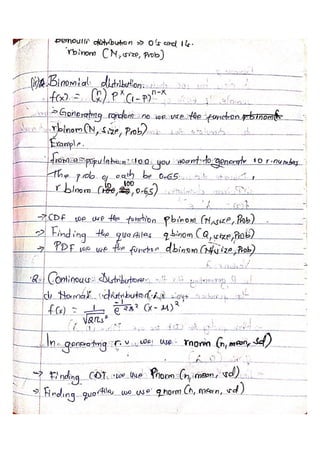 Bernoulli distribution => 0's and 1's.
rbinom (N, size, Prob)
Binomial distribution:
f(x) = (n x) P^x (1-P)^n-x
-> Generating random no we use the function
rbinom (N, size, Prob)
Example.
population = 100 you want to generate 10 r. numbers
The prob of each be 0.65
rbinom (10, 100, 0.65)
-> CDF we use the function pbinom (N, size, Prob)
-> Finding the quartiles qbinom (Q, size, Prob)
-> PDF we use the function dbinom (N, size, Prob)
2. Continous Distributions
Normal distribution
f(x) = 1/√2πs² e^-1/2s² (x-μ)²
In generating r.v we use rnorm (n, mean, sd)
-> Finding CDF we use Pnorm (n, mean, sd)
-> Finding quartiles we use qnorm (n, mean, sd)